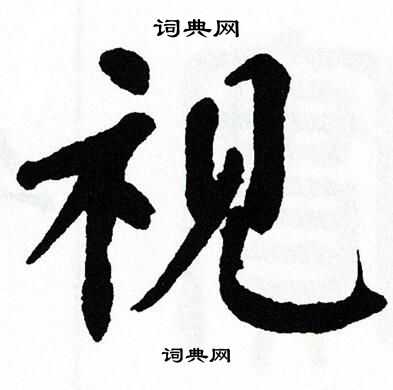 词典网
视
词典网